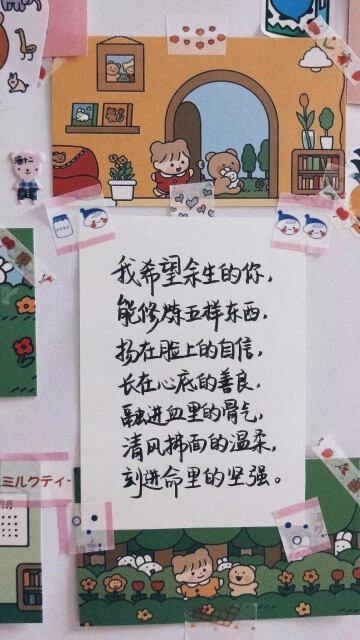 我希望余生的你，
能修炼五样东西，
扬在脸上的自信，
长在心底的善良，
融进血里的骨气，
清风拂面的温柔，
刻进命里的坚强。
ミルクティ-